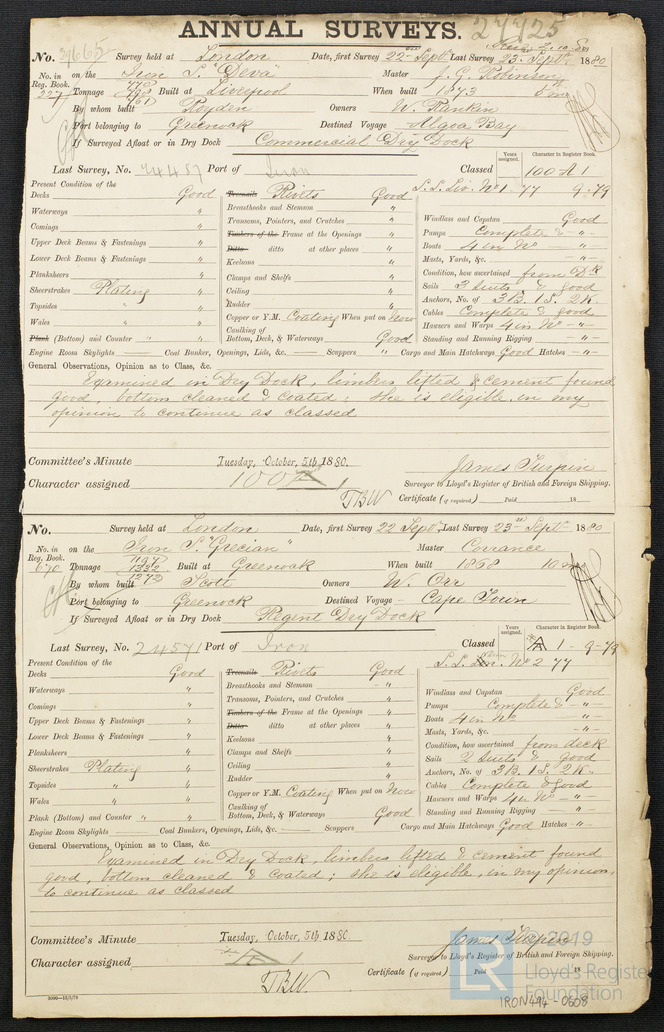 ANNUAL SURVEYS. 27725
No. Survey held at London Date, first Survey 22nd Septr. Last Survey 23. Septr. 1880
No. in on the Iron S. "Deva" Master J. G. Robinson
Reg. Book. 770
227 Tonnage Built at Liverpool When built 1873 5 mo
761
By whom built Royden Owners W. Rankin
Port belonging to Greenock Destined Voyage Algoa Bay
If Surveyed Afloat or in Dry Dock Commercial Dry Dock
Years assigned. Character in Register Book.
Last Survey, No. 24457 Port of Iron Classed 100 A 1
S.S. Liv. No 1 - 77 9-79
Present Condition of the
Decks Good Treenails Rivits Good
Waterways " Breasthooks and Stemson "
Comings " Transoms, Pointers, and Crutches "
Upper Deck Beams & Fastenings " Timbers of the Frame at the Openings "
Lower Deck Beams & Fastenings " Ditto ditto at other places "
Planksheers " Keelsons "
Sheerstrakes Plating " Clamps and Shelfs "
Topsides " " Ceiling "
Wales " Rudder "
Plank (Bottom) and Counter " " Copper or Y.M. Coating When put on Now
Caulking of
Bottom, Deck, & Waterways Good
Windlass and Capstan Good
Pumps Complete & -"-
Boats 4 in No -"-
Masts, Yards, &c. -"-
Condition, how ascertained from Dk
Sails 3 suits & good
Anchors, No. of 3B. 1S. 2K.
Cables Complete & good
Hawsers and Warps 4 in No -"-
Standing and Running Rigging -"-
Engine Room Skylights — Coal Bunker, Openings, Lids, &c. — Scuppers " Cargo and Main Hatchways Good Hatches -"-
General Observations, Opinion as to Class, &c.
Examined in Dry Dock, limbers lifted & cement found
good, bottom cleaned & coated; she is eligible in my
opinion to continue as classed
Committee's Minute Tuesday, October, 5th 1880.
James Turpin
Character assigned 100 A 1 Surveyor to Lloyd's Register of British and Foreign Shipping.
TBW Certificate (if required) Paid 18
No. Survey held at London Date, first Survey 22 Septr. Last Survey 23rd Septr. 1880
No. in on the Iron S. "Grecian" Master Corrance
Reg. Book. 1332
670 Tonnage Built at Greenock When built 1868 10 mo
1273
By whom built Scott Owners W. Orr
Port belonging to Greenock Destined Voyage Cape Town
If Surveyed Afloat or in Dry Dock Regent Dry Dock
Years assigned. Character in Register Book.
Last Survey, No. 24571 Port of Iron Classed A 1 - 9-79
S.S. No 2 77
Present Condition of the
Decks Good Treenails Rivits Good
Waterways " Breasthooks and Stemson -"-
Comings " Transoms, Pointers, and Crutches "
Upper Deck Beams & Fastenings " Timbers of the Frame at the Openings "
Lower Deck Beams & Fastenings " Ditto ditto at other places "
Planksheers " Keelsons "
Sheerstrakes Plating " Clamps and Shelfs "
Topsides " " Ceiling "
Wales " " Rudder "
Plank (Bottom) and Counter " " Copper or Y.M. Coating When put on Now
Caulking of
Bottom, Deck, & Waterways Good
Windlass and Capstan Good
Pumps Complete & -"-
Boats 4 in No -"-
Masts, Yards, &c. -"-
Condition, how ascertained from deck
Sails 2 suits & good
Anchors, No. of 3B. 1S. 2K.
Cables Complete & good
Hawsers and Warps 4 in No -"-
Standing and Running Rigging -"-
Engine Room Skylights — Coal Bunkers, Openings, Lids, &c. — Scuppers Cargo and Main Hatchways Good Hatches -"-
General Observations, Opinion as to Class, &c.
Examined in Dry Dock, limbers lifted & cement found
good, bottom cleaned & coated; she is eligible, in my opinion,
to continue as classed
Committee's Minute Tuesday, October, 5th 1880.
James Turpin
Character assigned A 1 Surveyor to Lloyd's Register of British and Foreign Shipping.
TBW Certificate (if required) Paid 18
© 2019
LR Lloyd's Register
Foundation
IRON494-0608